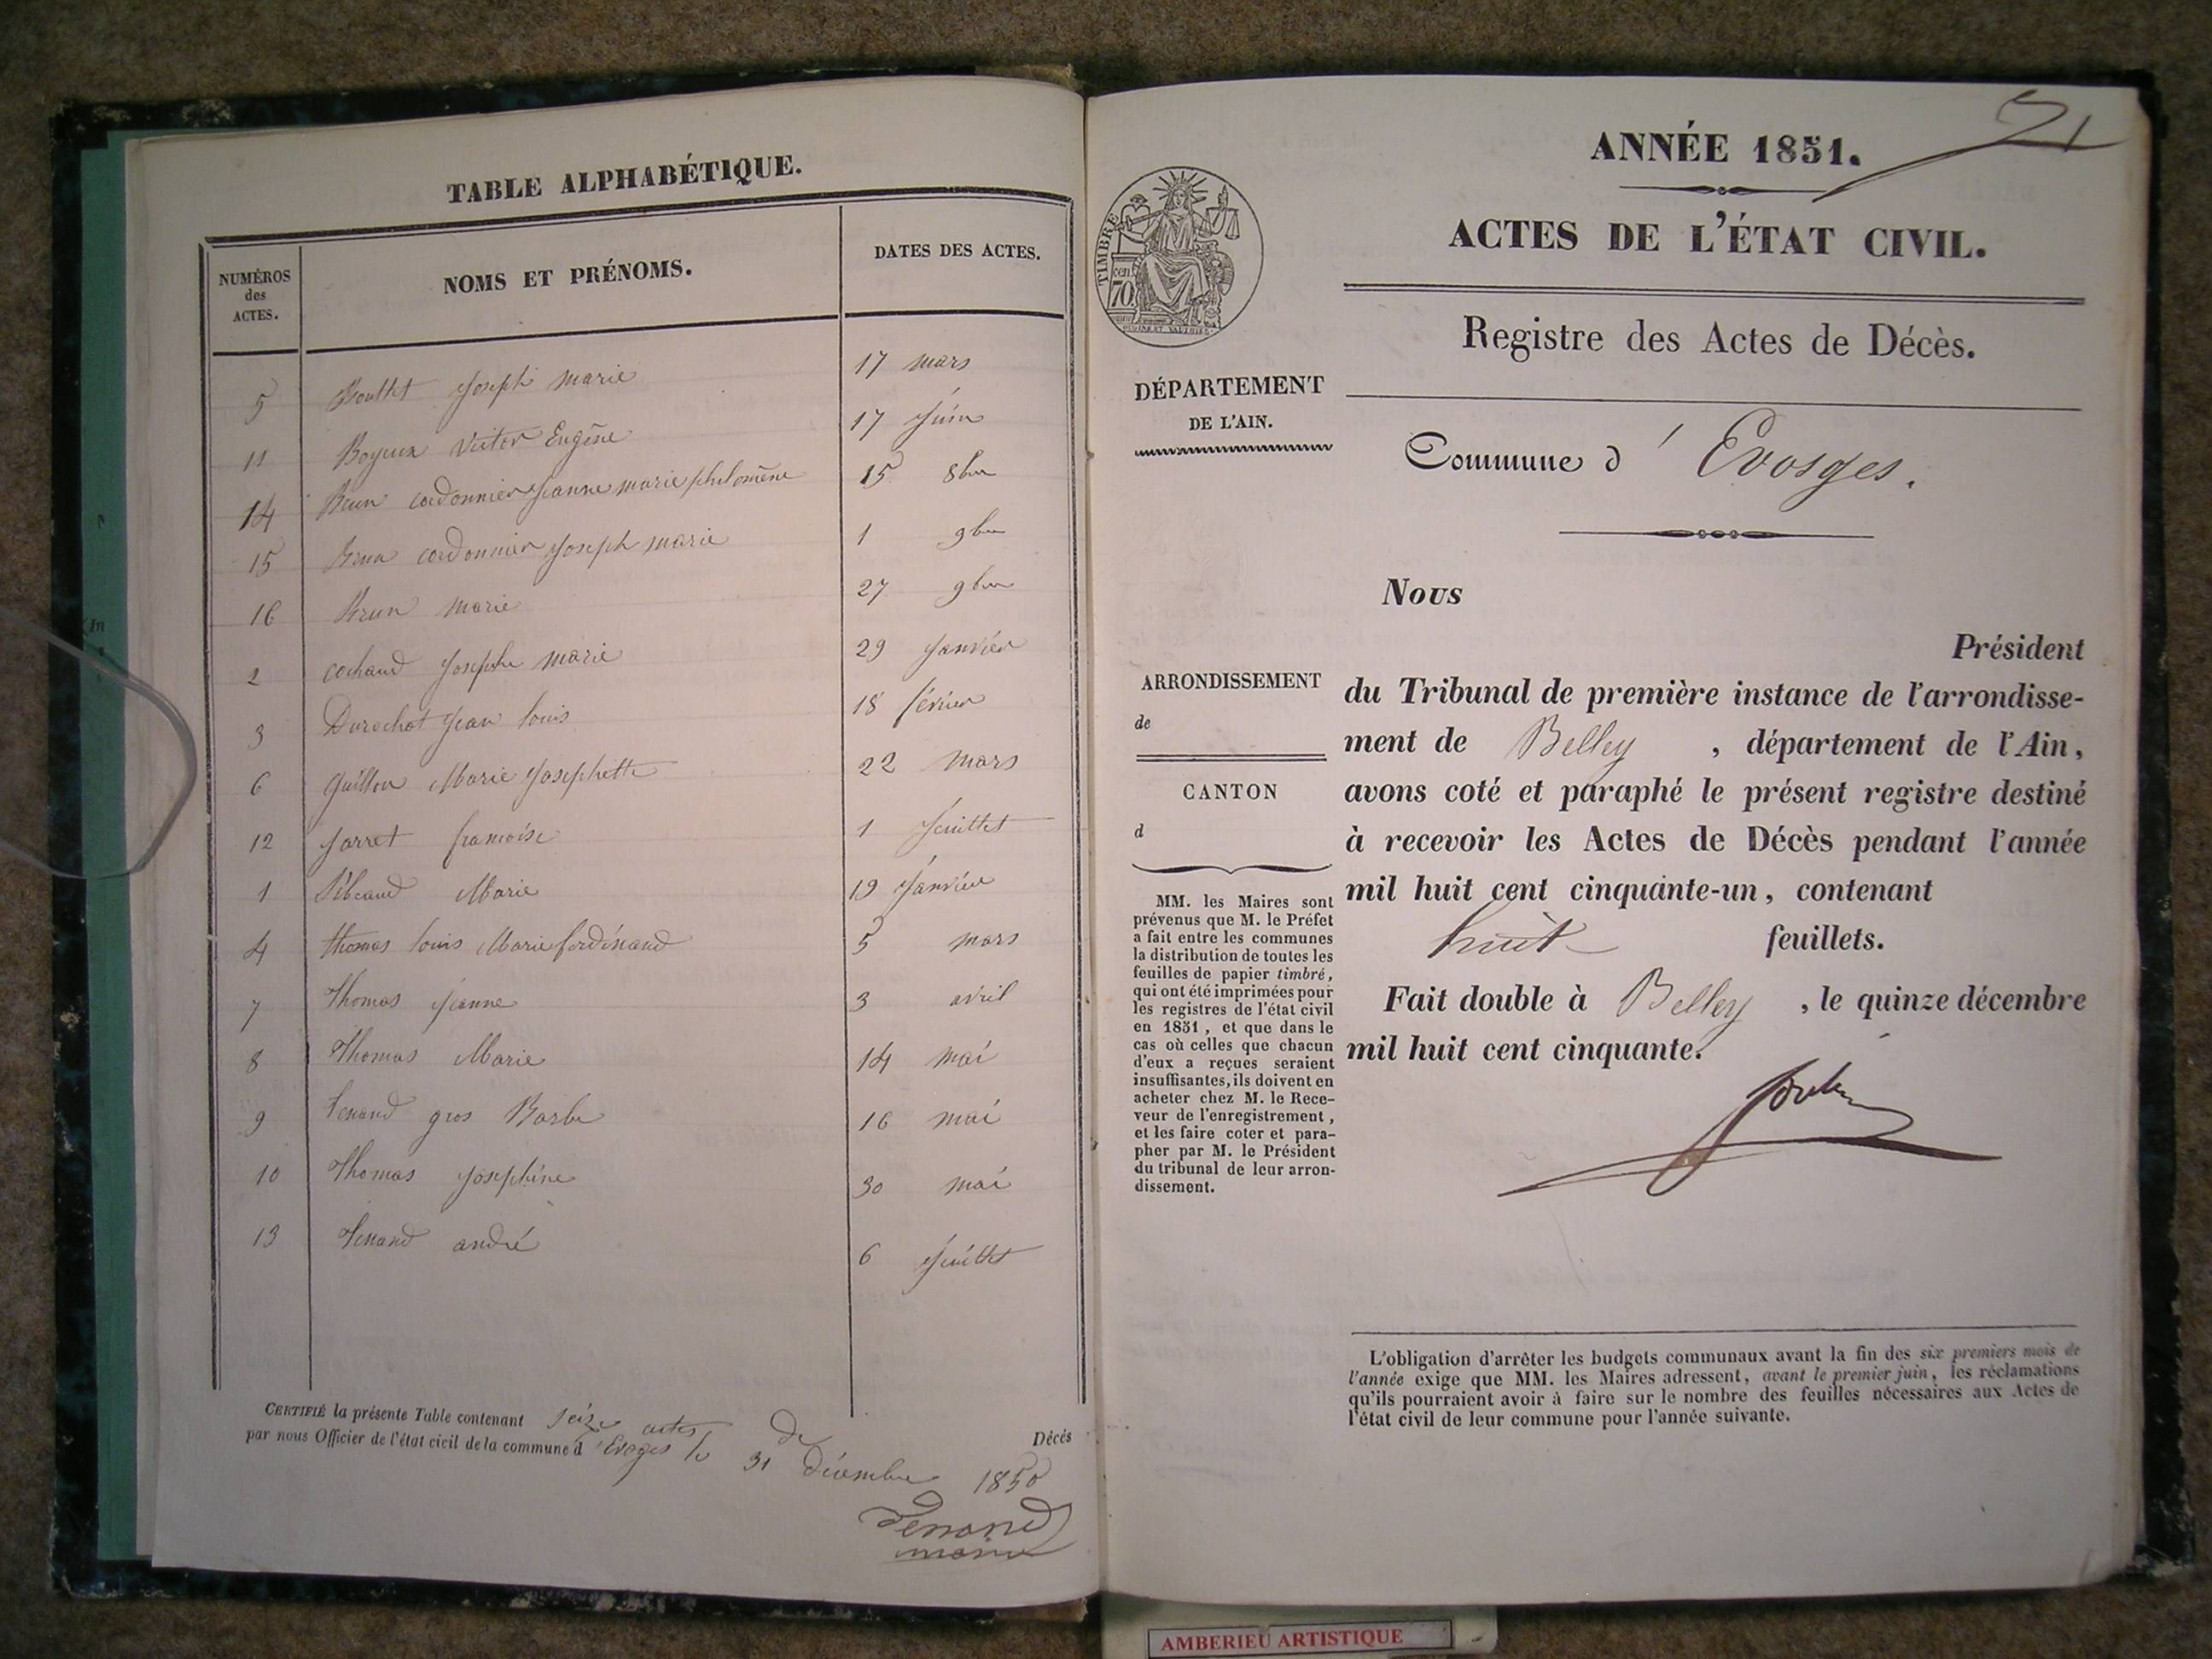 TABLE ALPHABÉTIQUE.
NUMÉROS
des
ACTES.
NOMS ET PRÉNOMS.
DATES DES ACTES.
5 Joseph marie 17 mars
11 Boyeux Victor Eugène 17 Juin
14 Brun cordonnier Jeanne marie philomène 15 8bre
15 Brun cordonnier Joseph marie 1 9bre
16 Brun marie 27 9bre
2 cochaud Josephe marie 29 Janvier
3 Durochat Jean louis 18 février
6 Guillon Marie Josephette 22 mars
12 Jarret françoise 1 Juillet
1 Marie 19 Janvier
4 thomas louis Marie ferdinand 5 mars
7 Thomas Jeanne 3 avril
8 Thomas Marie 14 mai
9 Tenand gros Barbe 16 mai
10 Thomas Josephine 30 mai
13 Tenand andré 6 Juillet
CERTIFIÉ la présente Table contenant seize actes de Décès
par nous Officier de l'état civil de la commune d'Evoges le 31 décembre 1850
Tenand
maire
21
ANNÉE 1851.
ACTES DE L'ÉTAT CIVIL.
Registre des Actes de Décès.
TIMBRE
cen.
70
DÉPARTEMENT
DE L'AIN.
Commune d' Evosges.
Nous
Président
du Tribunal de première instance de l'arrondisse-
ment de Belley, département de l'Ain,
avons coté et paraphé le présent registre destiné
à recevoir les Actes de Décès pendant l'année
mil huit cent cinquante-un, contenant
huit feuillets.
Fait double à Belley, le quinze décembre
mil huit cent cinquante.
ARRONDISSEMENT
de
CANTON
d
MM. les Maires sont
prévenus que M. le Préfet
a fait entre les communes
la distribution de toutes les
feuilles de papier timbré,
qui ont été imprimées pour
les registres de l'état civil
en 1851, et que dans le
cas où celles que chacun
d'eux a reçues seraient
insuffisantes, ils doivent en
acheter chez M. le Rece-
veur de l'enregistrement,
et les faire coter et para-
pher par M. le Président
du tribunal de leur arron-
dissement.
L'obligation d'arrêter les budgets communaux avant la fin des six premiers mois de
l'année exige que MM. les Maires adressent, avant le premier juin, les réclamations
qu'ils pourraient avoir à faire sur le nombre des feuilles nécessaires aux Actes de
l'état civil de leur commune pour l'année suivante.
AMBERIEU ARTISTIQUE